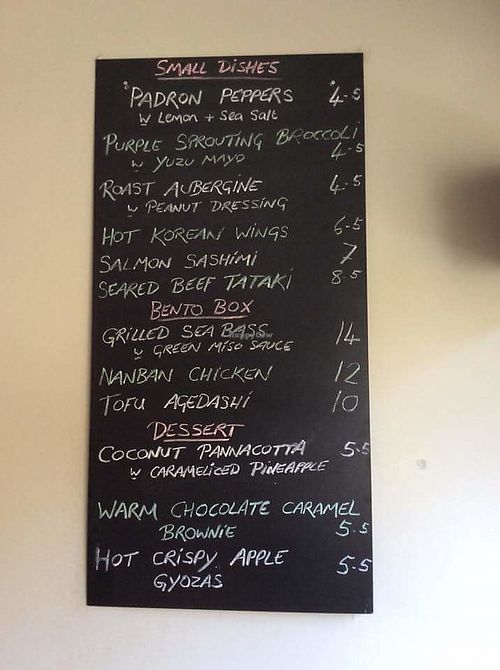 SMALL DISHES
PADRON PEPPERS 4.5
w LEMON + SEA SALT
PURPLE SPROUTING BROCCOLI
w YUZU MAYO 4.5
ROAST AUBERGINE 4.5
w PEANUT DRESSING
HOT KOREAN WINGS 6.5
SALMON SASHIMI 7
SEARED BEEF TATAKI 8.5
BENTO BOX
GRILLED SEA BASS 14
w GREEN MISO SAUCE
NANBAN CHICKEN 12
TOFU AGEDASHI 10
DESSERT
COCONUT PANNACOTTA 5.5
w CARAMELIZED PINEAPPLE
WARM CHOCOLATE CARAMEL
BROWNIE 5.5
HOT CRISPY APPLE 5.5
GYOZAS